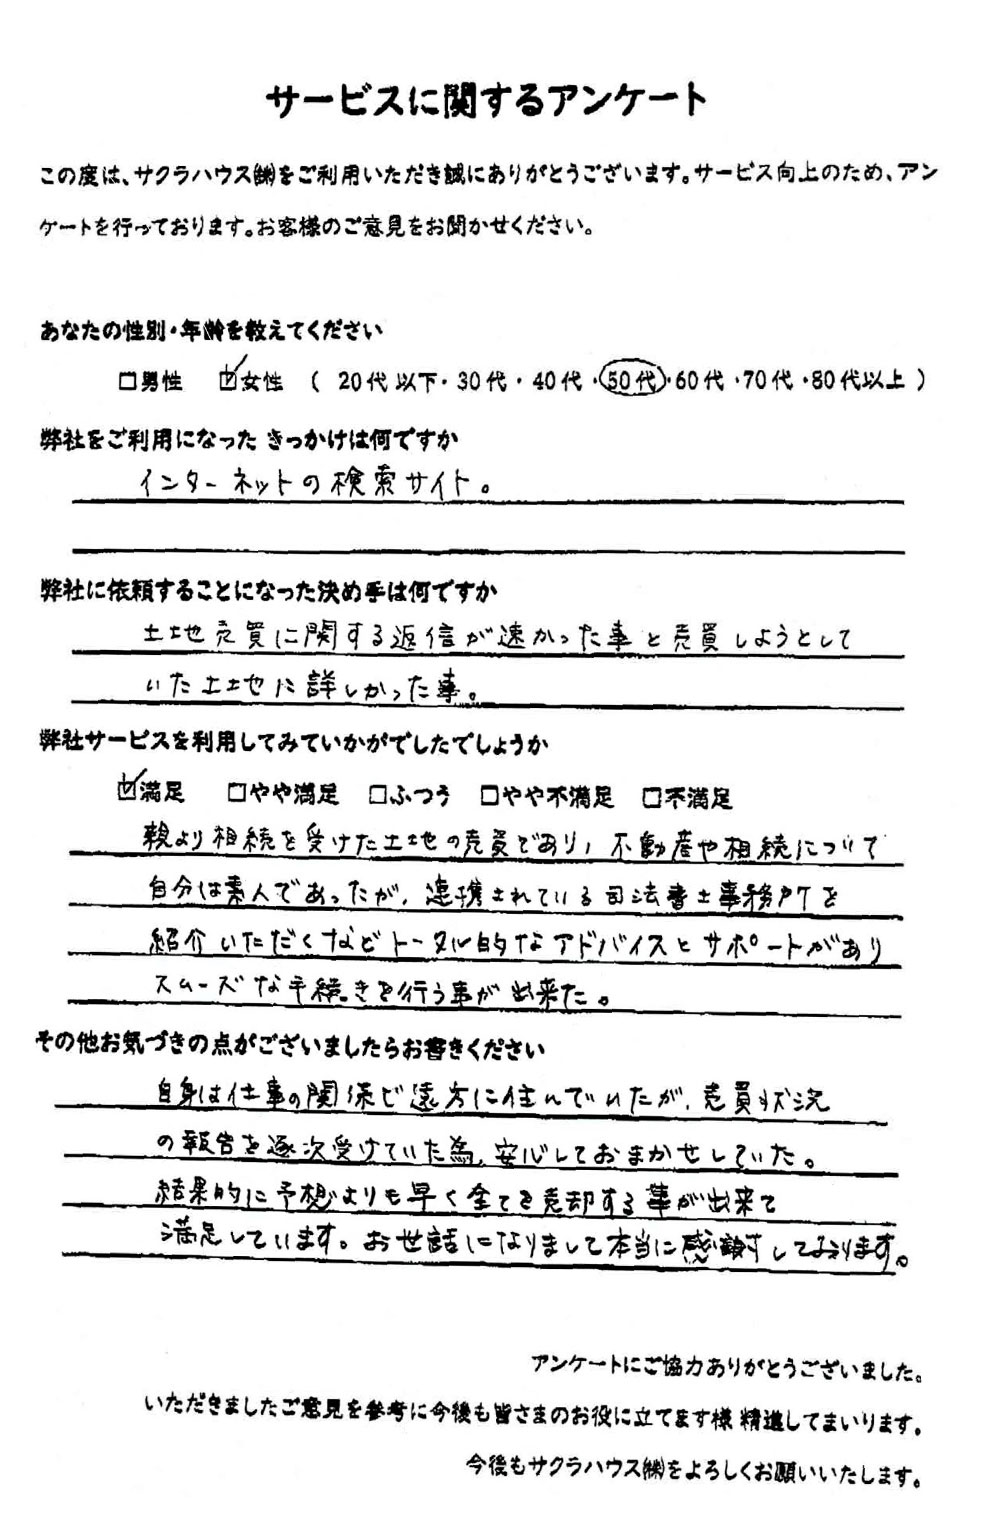 サービスに関するアンケート
この度は、サクラハウス㈱をご利用いただき誠にありがとうございます。サービス向上のため、アン
ケートを行っております。お客様のご意見をお聞かせください。
あなたの性別・年齢を教えてください
□男性 ☑女性 ( 20代以下・30代・40代・50代・60代・70代・80代以上 )
弊社をご利用になった きっかけは何ですか
インターネットの検索サイト。
弊社に依頼することになった決め手は何ですか
土地売買に関する返信が速かった事と売買しようとして
いた土地に詳しかった事。
弊社サービスを利用してみていかがでしたでしょうか
☑満足 □やや満足 □ふつう □やや不満足 □不満足
親より相続を受けた土地の売買であり、不動産や相続について
自分は素人であったが、連携されている司法書士事務所を
紹介いただくなどトータル的なアドバイスとサポートがあり
スムーズな手続きを行う事が出来た。
その他お気づきの点がございましたらお書きください
自身は仕事の関係で遠方に住んでいたが、売買状況
の報告を逐次受けていた為、安心しておまかせしていた。
結果的に予想よりも早く全てを売却する事が出来て
満足しています。お世話になりまして本当に感謝しております。
アンケートにご協力ありがとうございました。
いただきましたご意見を参考に今後も皆さまのお役に立てます様 精進してまいります。
今後もサクラハウス㈱をよろしくお願いいたします。